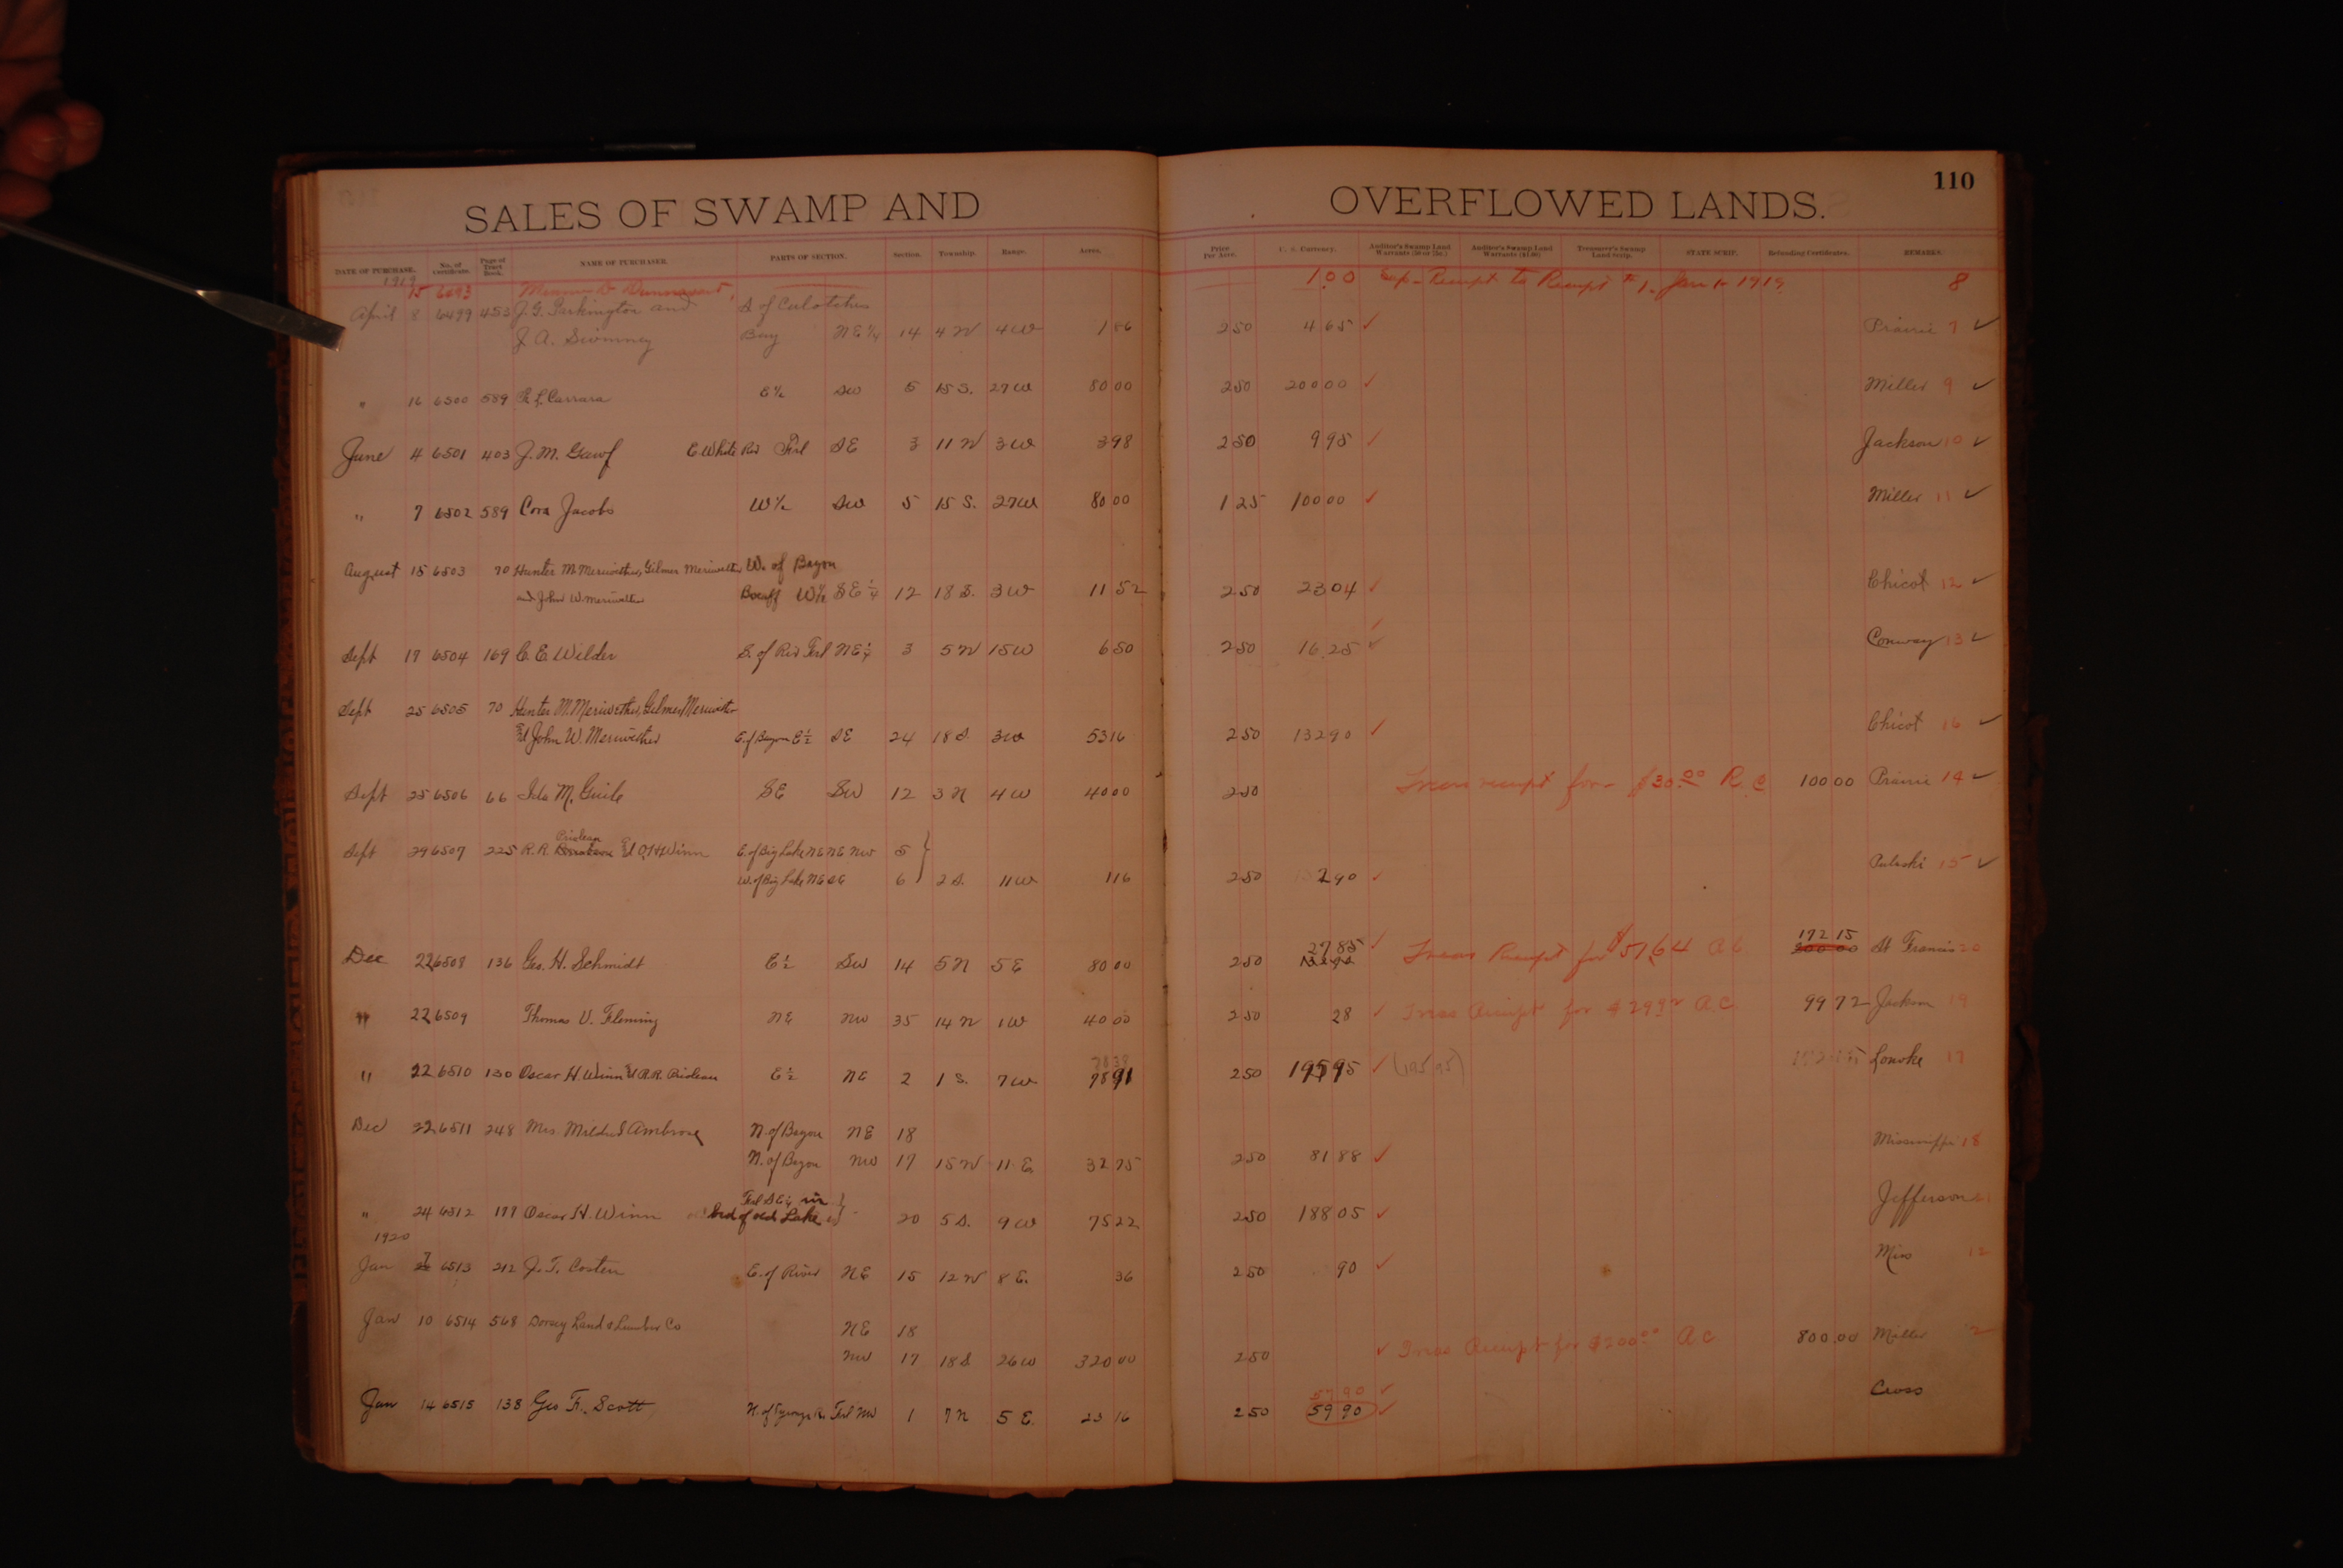 110
SALES OF SWAMP AND OVERFLOWED LANDS.
DATE OF PURCHASE. No. of Certificate. Page of Tract Book. NAME OF PURCHASER. PARTS OF SECTION. Section. Township. Range. Acres. Price Per Acre. U. S. Currency. Auditor's Swamp Land Warrants Auditor's Swamp Land Warrants ($1.00) Treasurer's Swamp Land Scrip. STATE SCRIP. Refunding Certificates. REMARKS.
1919
15 6093 1.00 Exp- Receipt to Receipt # 1. Jan 1- 1919. 8
April 8 6499 453 J. G. Parkington and S of Culotches
J A. Swinney Bay NE 1/4 14 4 N 4 W 1 86 2 50 4 65 ✓ Prairie 7 ✓
" 16 6500 589 L. Carrara E 1/2 SW 5 15 S. 27 W 80 00 2 50 200 00 ✓ Miller 9 ✓
June 4 6501 403 J. M. Gawf E White Riv Frl SE 3 11 N 3 W 3 98 2 50 9 95 ✓ Jackson 10 ✓
" 7 6502 589 Cora Jacobs W 1/2 SW 5 15 S. 27 W 80 00 1 25 100 00 ✓ Miller 11 ✓
August 15 6503 70 Hunter M. Meriwether, Gilmer Meriwether W. of Bayou
and John W. Meriwether Boeuff W 1/2 SE 1/4 12 18 S. 3 W 11 52 2 50 23 04 ✓ Chicot 12 ✓
Sept 17 6504 169 C. E. Wilder S. of Riv Frl NE 1/4 3 5 N 15 W 6 50 2 50 16.25 ✓ Conway 13 ✓
Sept 25 6505 70 Hunter M. Meriwether, Gilmer Meriwether
& John W. Meriwether E. of Bayou E 1/2 SE 24 18 S. 3 W 53 16 2 50 132 90 ✓ Chicot 16 ✓
Sept 25 6506 66 Ida M. Guile SE SW 12 3 N 4 W 40 00 2 50 Treas receipt for $30.00 R. C 100 00 Prairie 14 ✓
Prideau
Sept 29 6507 225 R. R. & O. H. Winn E. of Big Lake NE NE NW 5
W. of Big Lake NE SE 6 2 S. 11 W 1 16 2 50 2 90 ✓ Pulaski 15 ✓
27 85 ✓ 172 15
Dec 22 6508 136 Geo. H. Schmidt E 1/2 SW 14 5 N 5 E 80 00 2 50 Treas Receipt for $57.64 A C 200 00 St Francis 20
" 22 6509 Thomas V. Fleming NE NW 35 14 N 1 W 40 00 2 50 28 ✓ Treas Receipt for $29.92 A. C. 99 72 Jackson 19
78 38
" 22 6510 130 Oscar H. Winn & R. R. Prideau E 1/2 NE 2 1 S. 7 W 2 50 195 95 ✓ (195 95) Lonoke 17
Dec 22 6511 248 Mrs. Mildred Ambrose N. of Bayou NE 18
N. of Bayou NW 17 15 N 11 E. 32 75 2 50 81 88 ✓ Mississippi 18
Frl SE 1/4 in
" 24 6512 177 Oscar H. Winn bed of old Lake 20 5 S. 9 W 75 22 2 50 188 05 ✓ Jefferson
1920
Jan 7 6513 212 J. T. Costen E. of River NE 15 12 N 8 E. 36 2 50 90 ✓ Miss
Jan 10 6514 568 Dorsey Land & Lumber Co NE 18
NW 17 18 S 26 W 320 00 2 50 ✓ Treas Receipt for $200.00 A. C. 800.00 Miller
57 90 ✓
Jan 14 6515 138 Geo F. Scott N. of Tyronza R. Frl NW 1 7 N 5 E. 23 16 2 50 59 90 ✓ Cross